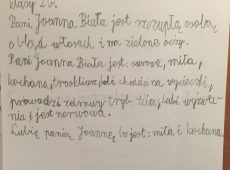 klasy 2b.
Pani Joanna Biała jest szczupłą osobą
o blond włosach i ma zielone oczy.
Pani Joanna Biała jest: miła,
kochana, troskliwa, lubi chodzić na wycieczki,
prowadzi zdrowy tryb życia, lubi
nia i jest nerwowa.
Lubię panią Joannę, bo jest: miła i kochana.